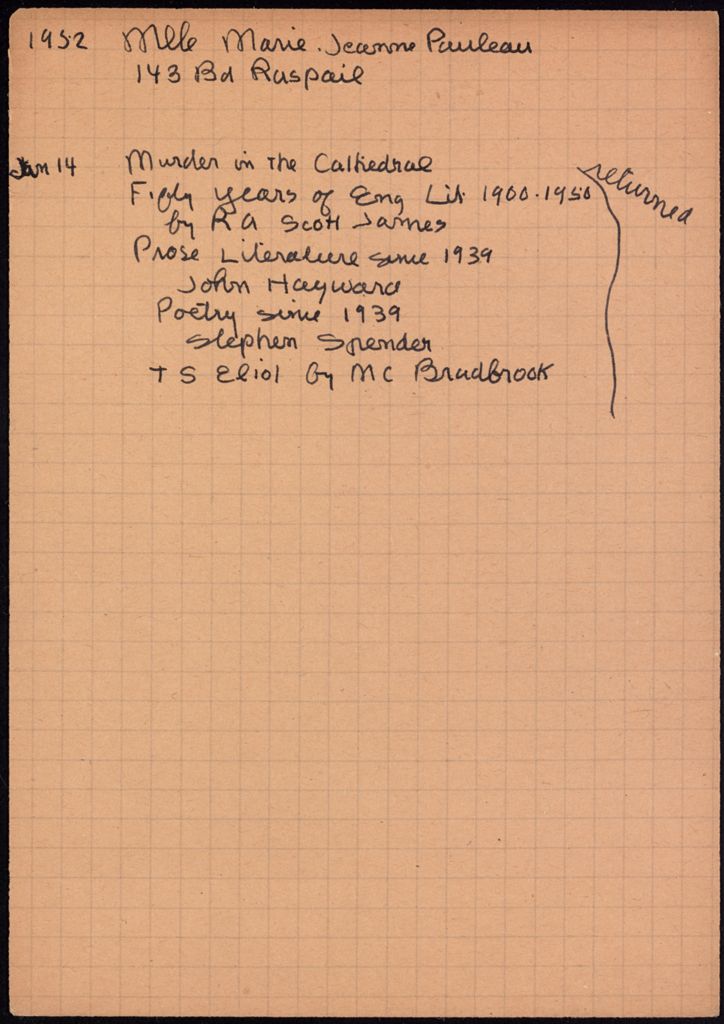 1952 Mlle Marie-Jeanne Pauleau
143 Bd Raspail
Jan 14 Murder in the Cathedral
Fifty years of Eng Lit 1900-1950 returned
by R A Scott James
Prose Literature since 1939
John Hayward
Poetry since 1939
Stephen Spender
T S Eliot by M C Bradbrook